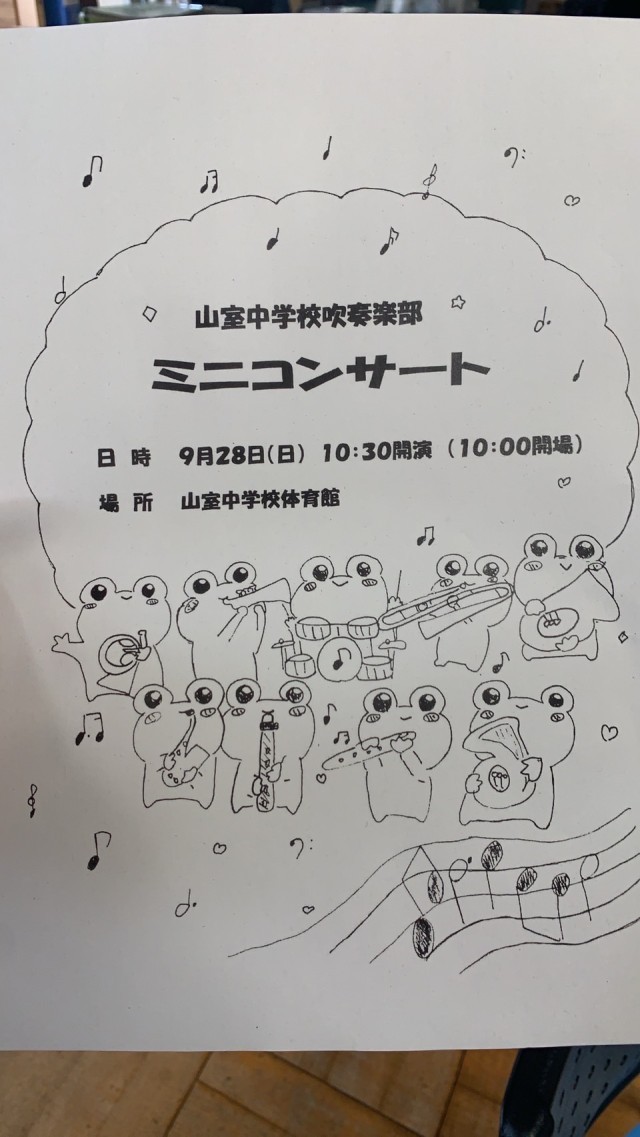 山室中学校吹奏楽部
ミニコンサート
日 時 9月28日(日) 10:30開演 (10:00開場)
場 所 山室中学校体育館